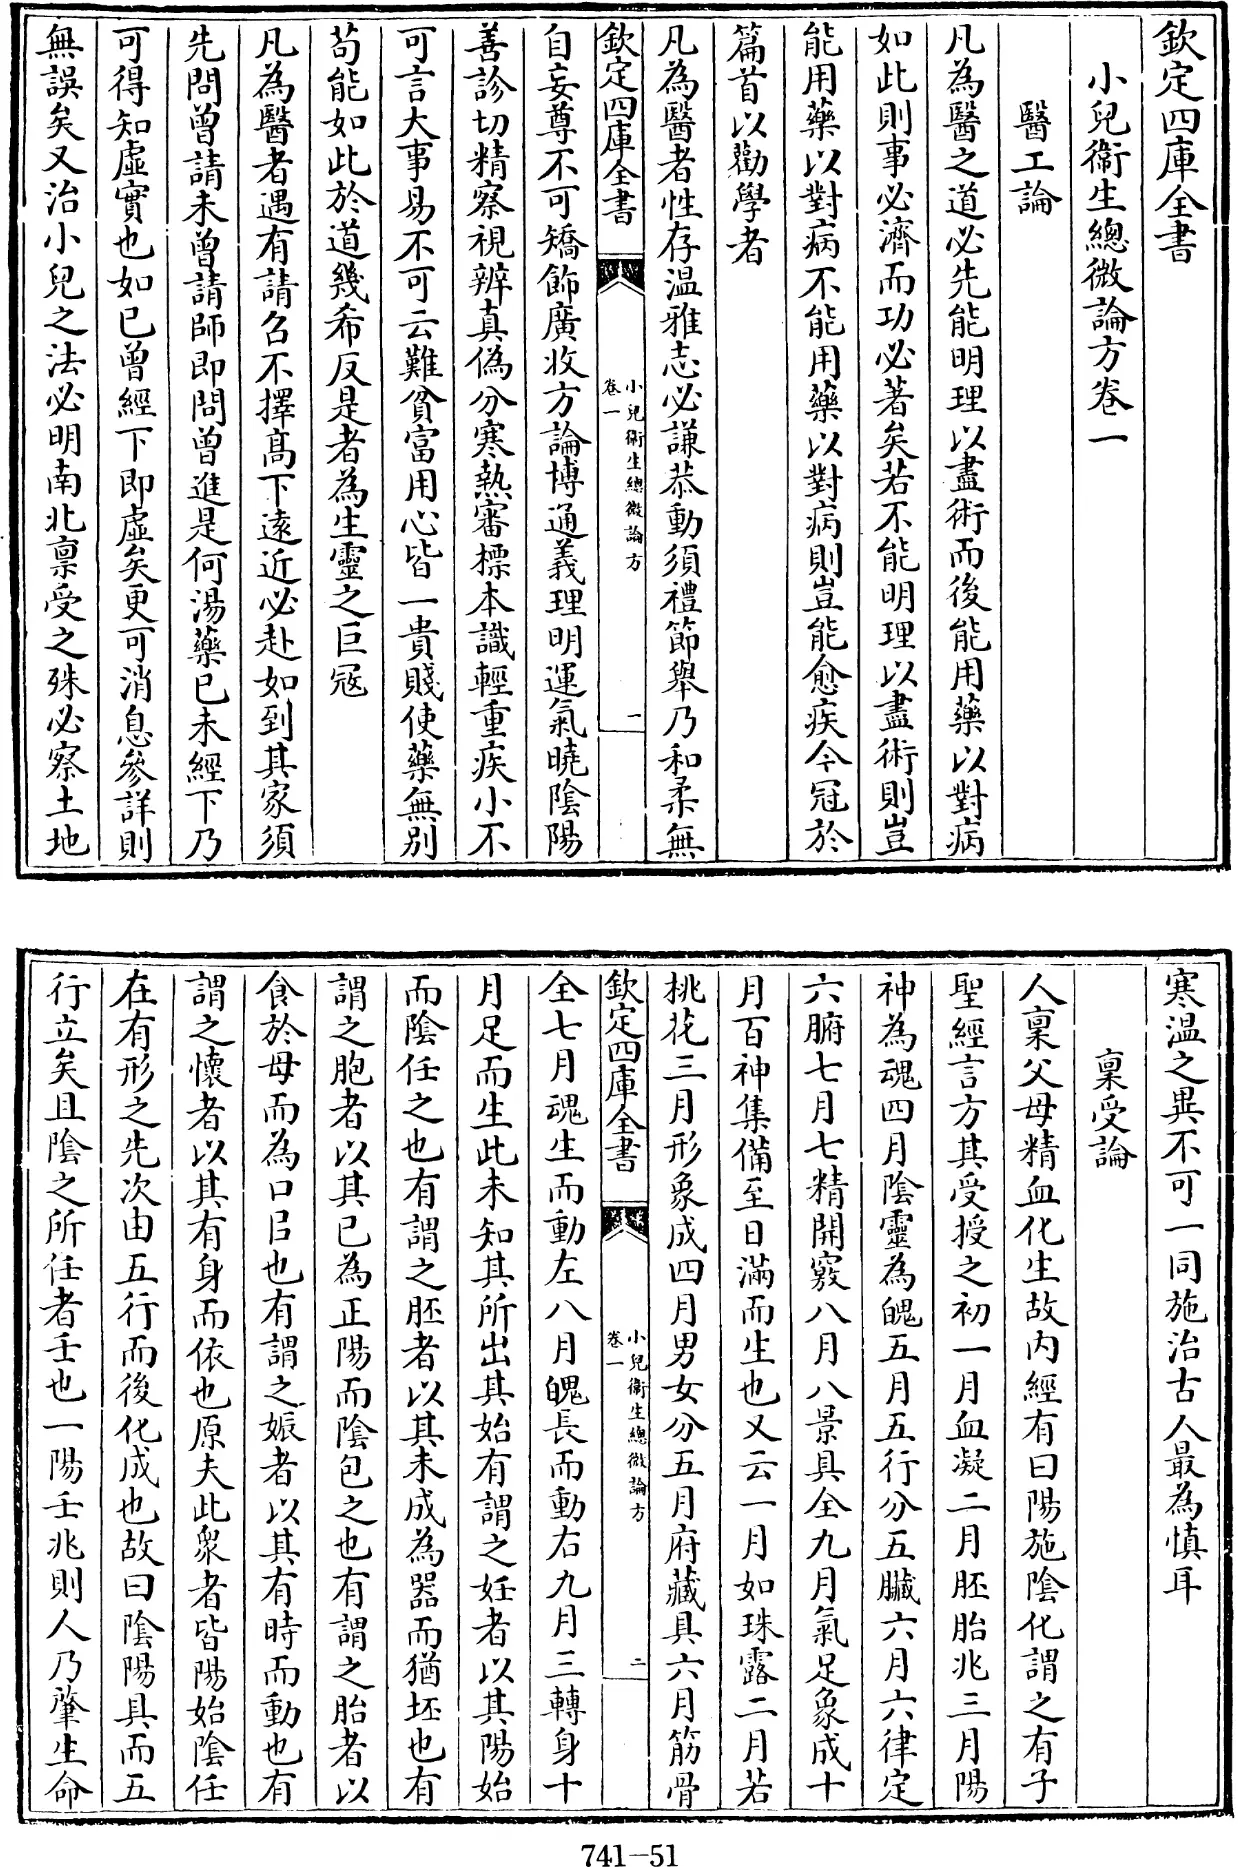 欽定四庫全書
小兒衞生總微論方卷一
醫工論
凡為醫之道必先能明理以盡術而後能用藥以對病
如此則事必濟而功必著矣若不能明理以盡術則豈
能用藥以對病不能用藥以對病則豈能愈疾今冠於
篇首以勸學者
凡為醫者性存温雅志必謙恭動須禮節舉乃和柔無
欽定四庫全書
小兒衞生總微論方
卷一
一
自妄尊不可矯飾廣收方論博通義理明運氣曉陰陽
善診切精察視辨真偽分寒熱審標本識輕重疾小不
可言大事易不可云難貧富用心皆一貴賤使藥無別
苟能如此於道幾希反是者為生靈之巨寇
凡為醫者遇有請召不擇髙下遠近必赴如到其家須
先問曾請未曾請師即問曾進是何湯藥已未經下乃
可得知虛實也如已曾經下即虛矣更可消息參詳則
無誤矣又治小兒之法必明南北禀受之殊必察土地
寒温之異不可一同施治古人最為慎耳
禀受論
人禀父母精血化生故内經有曰陽施陰化謂之有子
聖經言方其受授之初一月血凝二月胚胎兆三月陽
神為魂四月陰靈為魄五月五行分五臟六月六律定
六腑七月七精開竅八月八景具全九月氣足象成十
月百神集備至日滿而生也又云一月如珠露二月若
桃花三月形象成四月男女分五月府藏具六月筋骨
欽定四庫全書
小兒衞生總微論方
卷一
二
全七月魂生而動左八月魄長而動右九月三轉身十
月足而生此未知其所出其始有謂之妊者以其陽始
而陰任之也有謂之胚者以其未成為器而猶坯也有
謂之胞者以其已為正陽而陰包之也有謂之胎者以
食於母而為口㠯也有謂之娠者以其有時而動也有
謂之懷者以其有身而依也原夫此衆者皆陽始陰任
在有形之先次由五行而後化成也故曰陰陽具而五
行立矣且陰之所任者壬也一陽壬兆則人乃肇生命
741—51